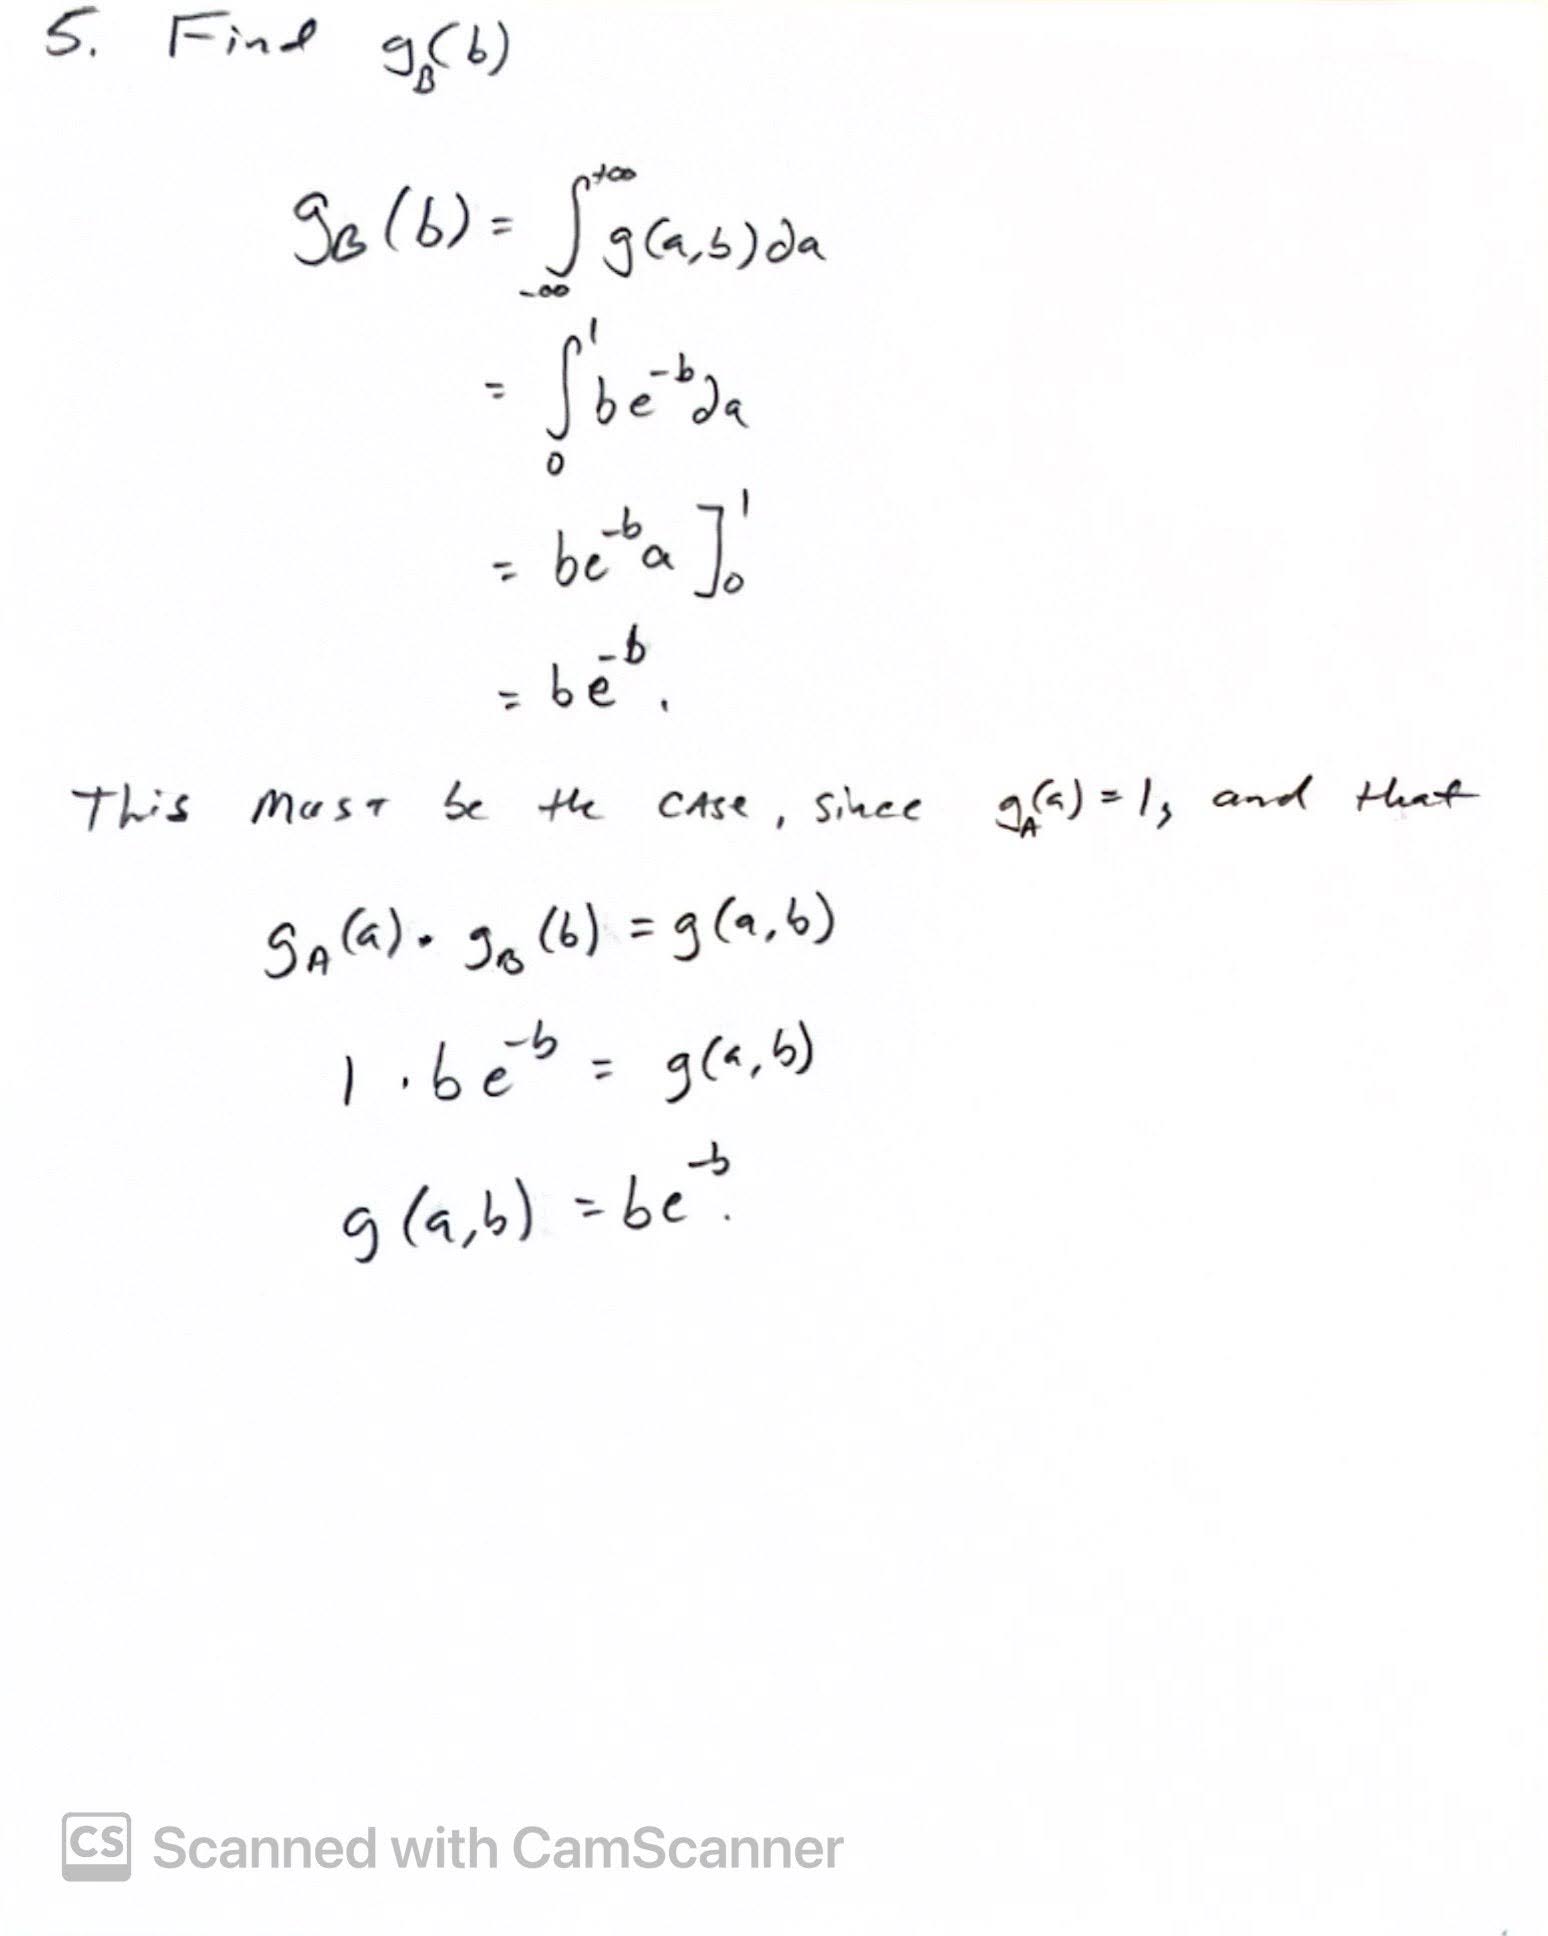 5. Find g_B(b)
g_B(b) = ∫_{-∞}^{+∞} g(a,b)da
= ∫_0^1 be^{-b}da
= be^{-b}a]_0^1
= be^{-b}.
This must be the case, since g_A(a) = 1, and that
g_A(a) · g_B(b) = g(a,b)
1 · be^{-b} = g(a,b)
g(a,b) = be^{-b}.
CS Scanned with CamScanner